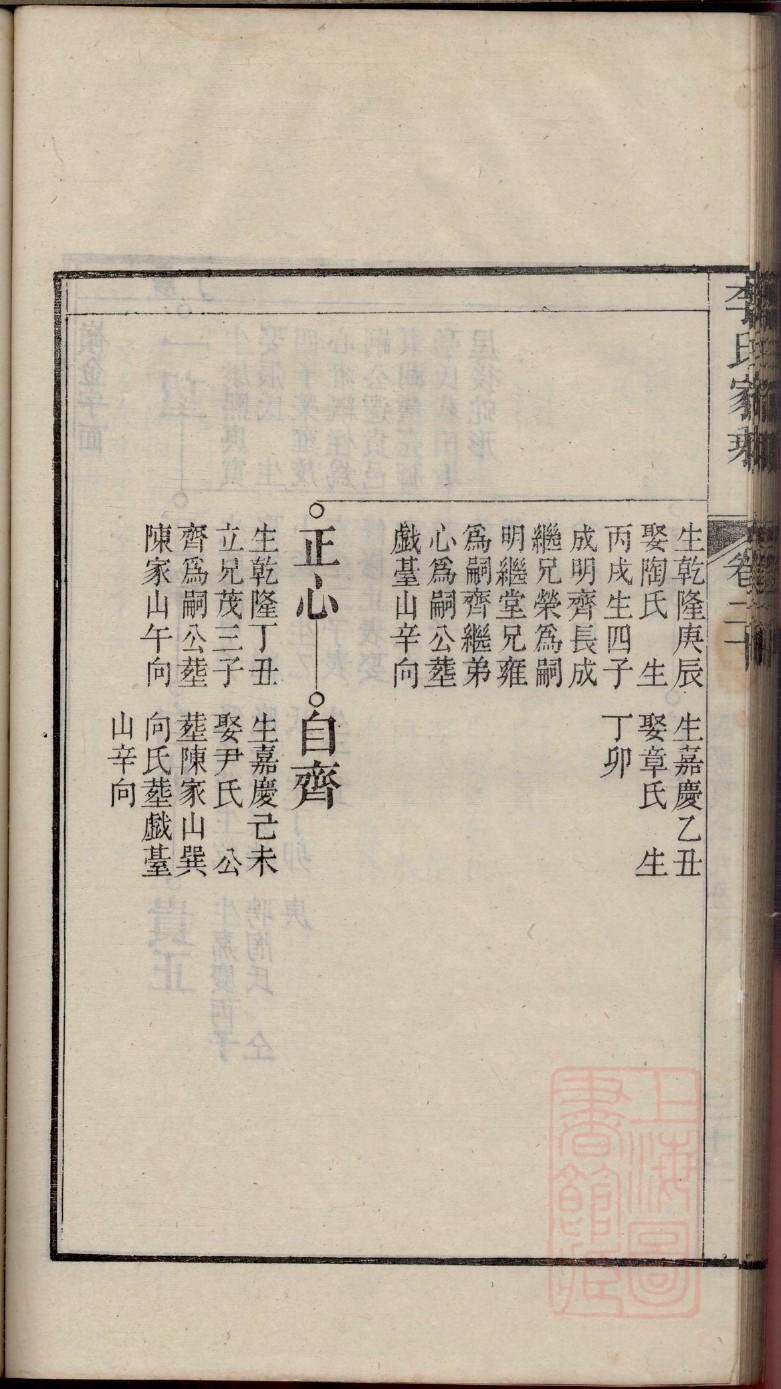 李氏家乘
卷二十
生乾隆庚辰
娶陶氏 生
丙戌生四子
成明齊長成
繼兄榮為嗣
明繼堂兄雍
為嗣齊繼弟
心為嗣公塟
戲臺山辛向
生嘉慶乙丑
娶章氏 生
丁卯
正心
生乾隆丁丑
立兄茂三子
齊爲嗣公塟
陳家山午向
自齊
生嘉慶己未
娶尹氏 公
塟陳家山巽
向氏塟戲臺
山辛向
上海圖
書館藏